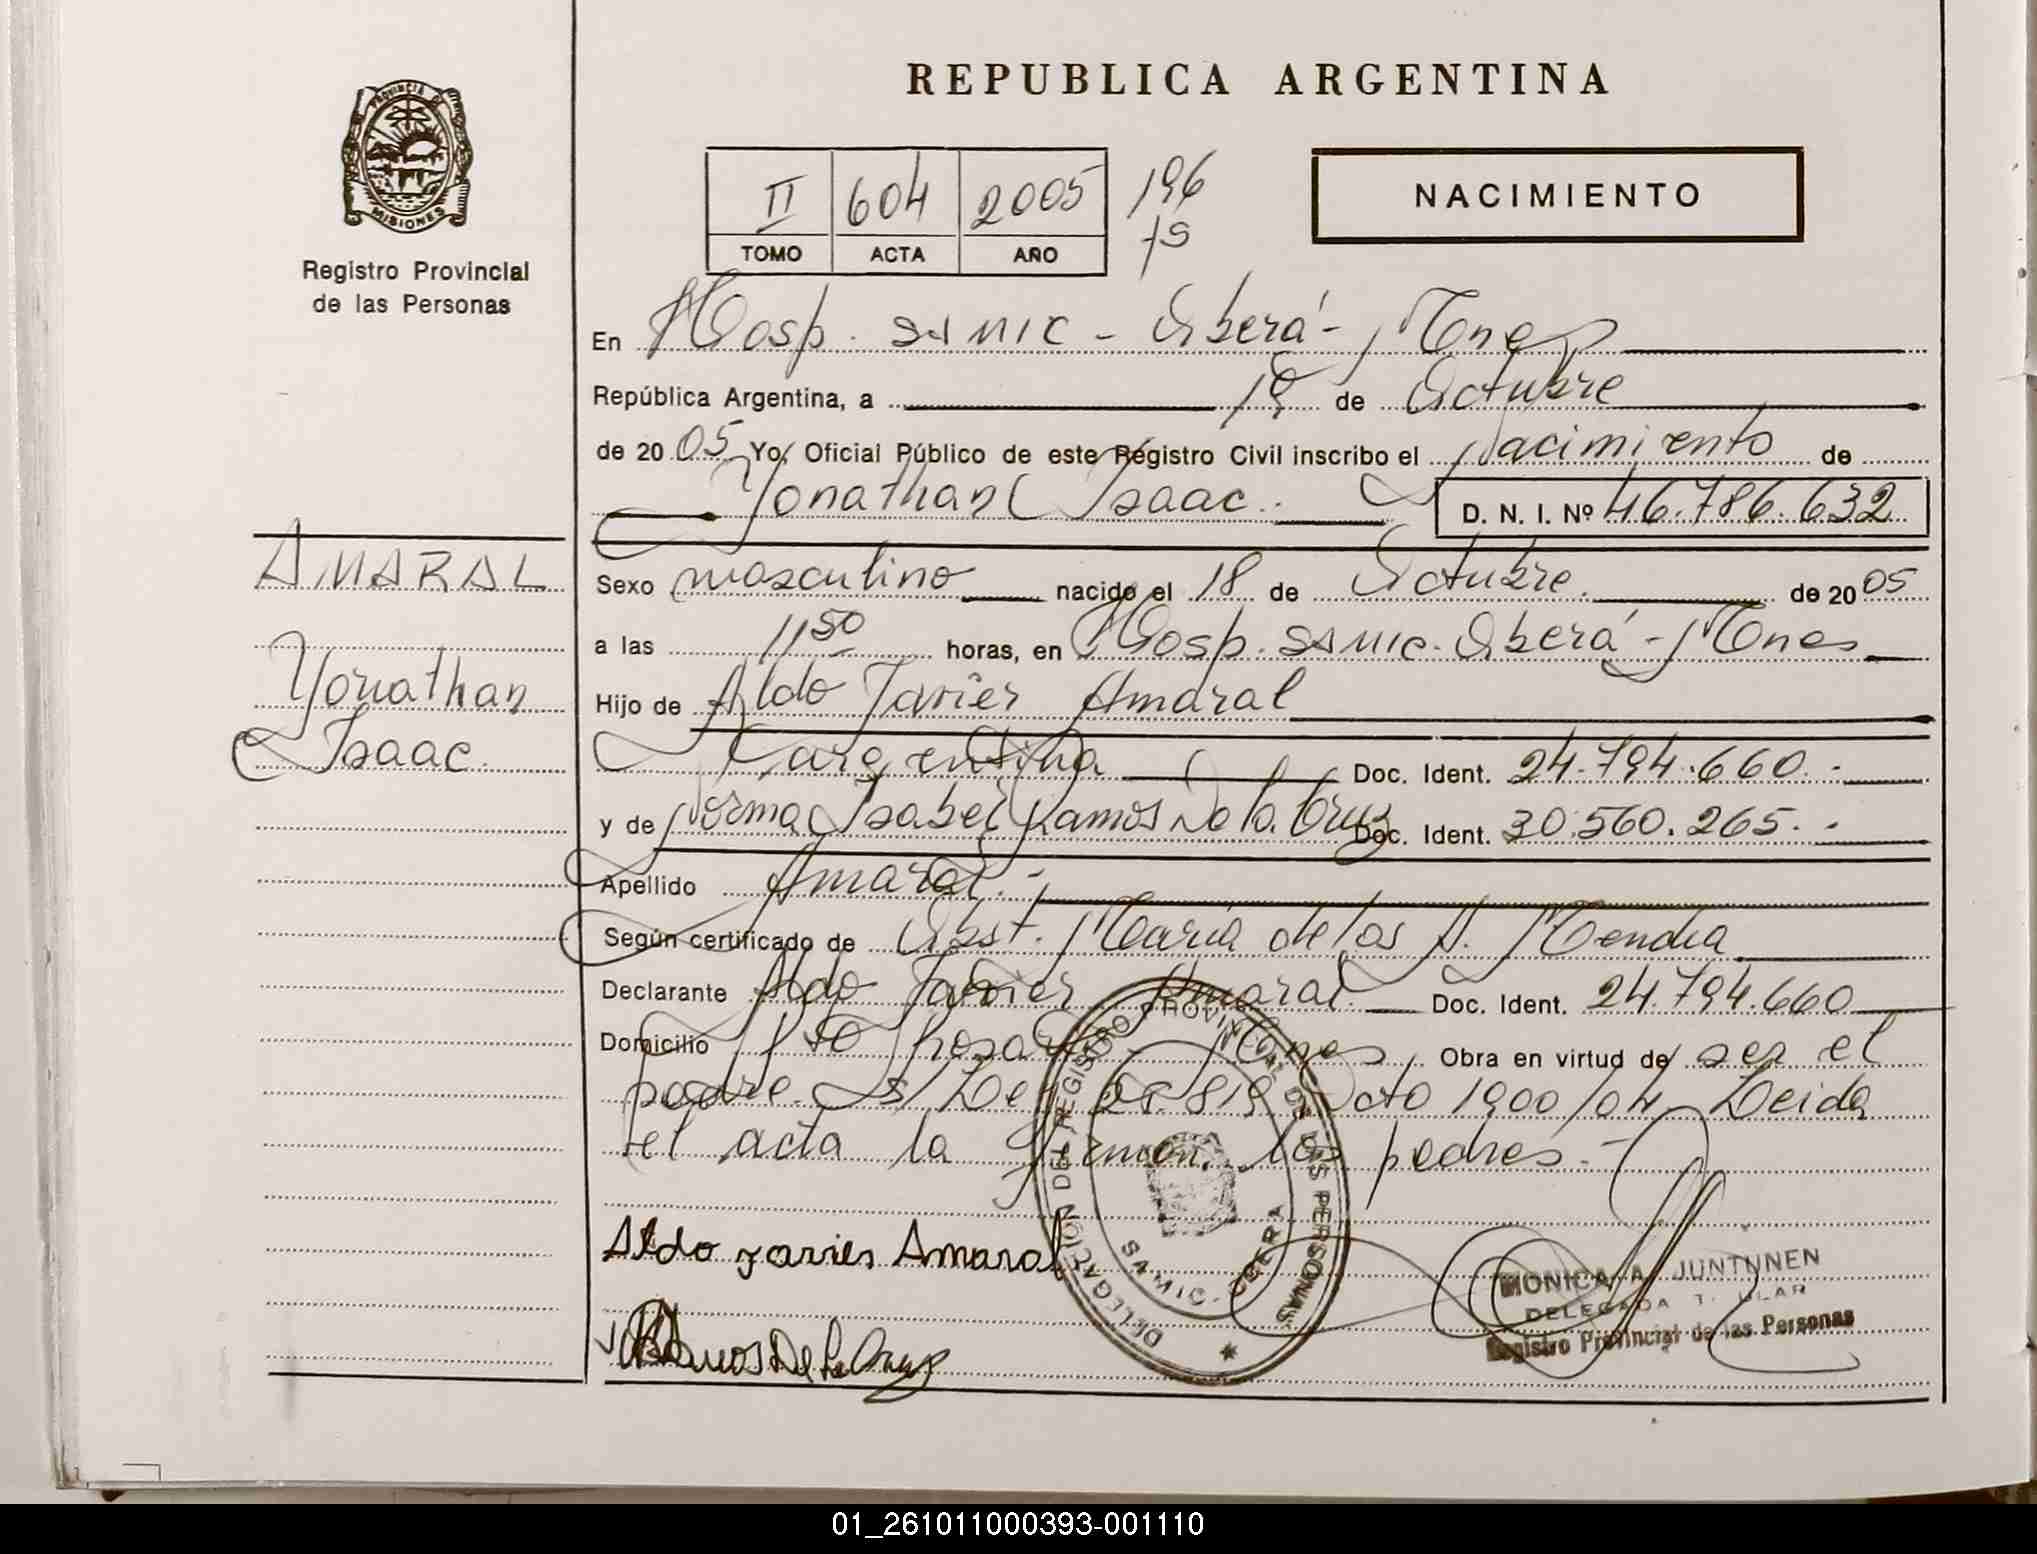 PROVINCIA DE
MISIONES
Registro Provincial
de las Personas
REPUBLICA ARGENTINA
II 604 2005 196
TOMO ACTA AÑO fs
NACIMIENTO
En Hosp. SAMIC - Oberá - Mnes
República Argentina, a 19 de Octubre
de 20 05 Yo, Oficial Público de este Registro Civil inscribo el Nacimiento de
Yonathan Isaac. D. N. I. Nº 46.786.632
AMARAL
Yonathan
Isaac.
Sexo masculino nacido el 18 de Octubre. de 20 05
a las 11 50 horas, en Hosp. SAMIC. Oberá - Mnes
Hijo de Aldo Javier Amaral
argentina Doc. Ident. 24.794.660.-
y de Norma Isabel Ramos De la Cruz Doc. Ident. 30.560.265.-
Apellido Amaral.-
Según certificado de Obst. María de los A.
Declarante Aldo Javier Amaral. Doc. Ident. 24.794.660
Domicilio Pto Rosario Mnes Obra en virtud de ser el
padre. S/ Ley 25.819 Dcto 1900/04 Leida
el acta la firman los padres.-
Aldo Javier Amaral
Ramos De La Cruz
DELEGACION DEL REGISTRO PROVINCIAL DE LAS PERSONAS
SAMIC - OBERA
MONICA A. JUNTUNEN
DELEGADA TITULAR
Registro Provincial de las Personas
01_261011000393-001110